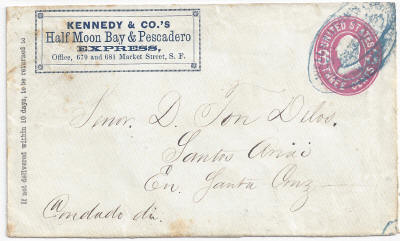 If not delivered within 10 days, to be returned to
KENNEDY & CO.'S
Half Moon Bay & Pescadero
EXPRESS,
Office, 679 and 681 Market Street, S. F.
UNITED STATES
Senor. D. Ton Delos.
Santos
En. Santa Cruz
Condado di.